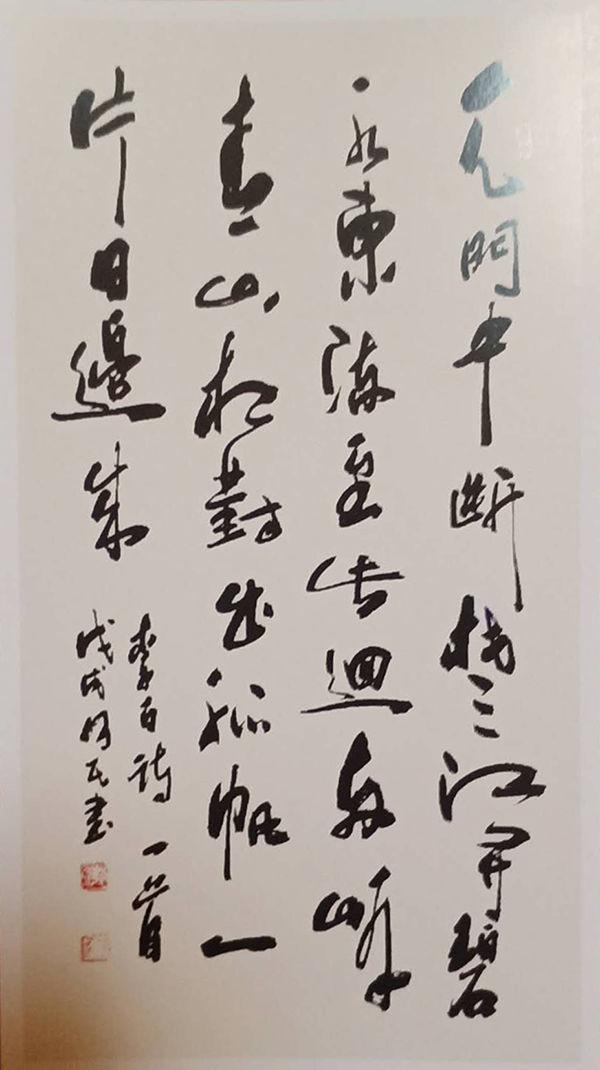 天門中斷楚江開碧
水東流至此迴兩岸
青山相對出孤帆一
片日邊來
李白詩一首
戊戌民書